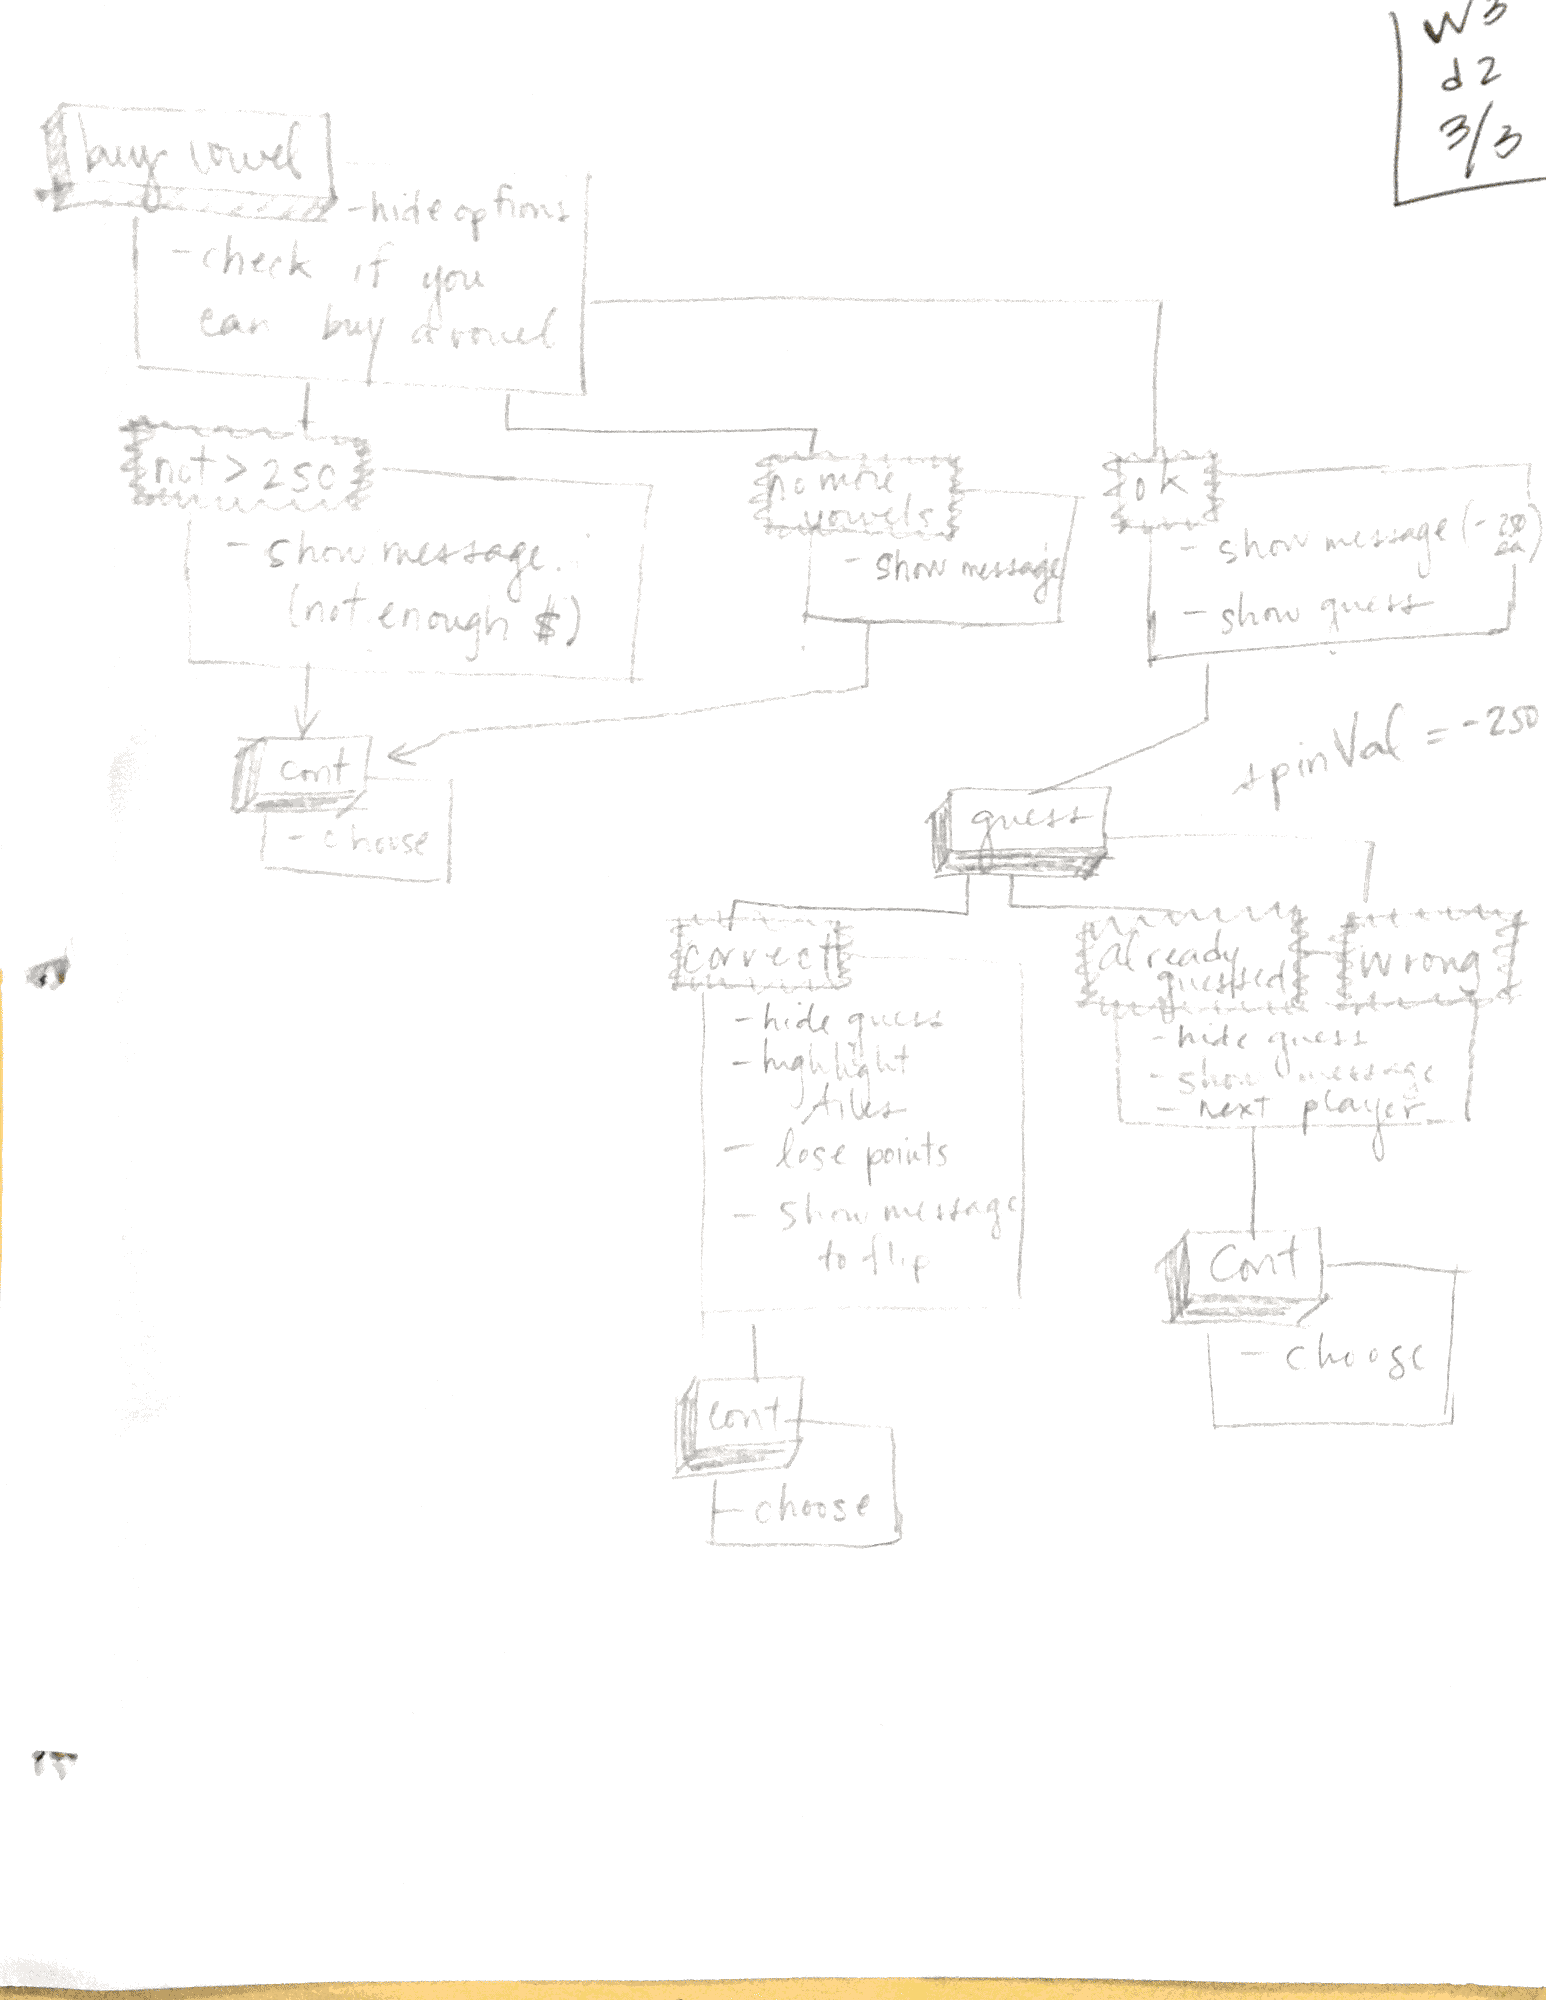 W3
d2
3/3
buy vowel
- hide options
- check if you
can buy a vowel
not > 250
- show message
(not enough $)
no more
vowels
- show message
ok
- show message (-250
ea)
- show guess
spinVal = -250
cont
- choose
guess
correct
- hide guess
- highlight
tiles
- lose points
- show message
to flip
already
guessed
wrong
- hide guess
- show message
- next player
cont
- choose
Cont
- choose